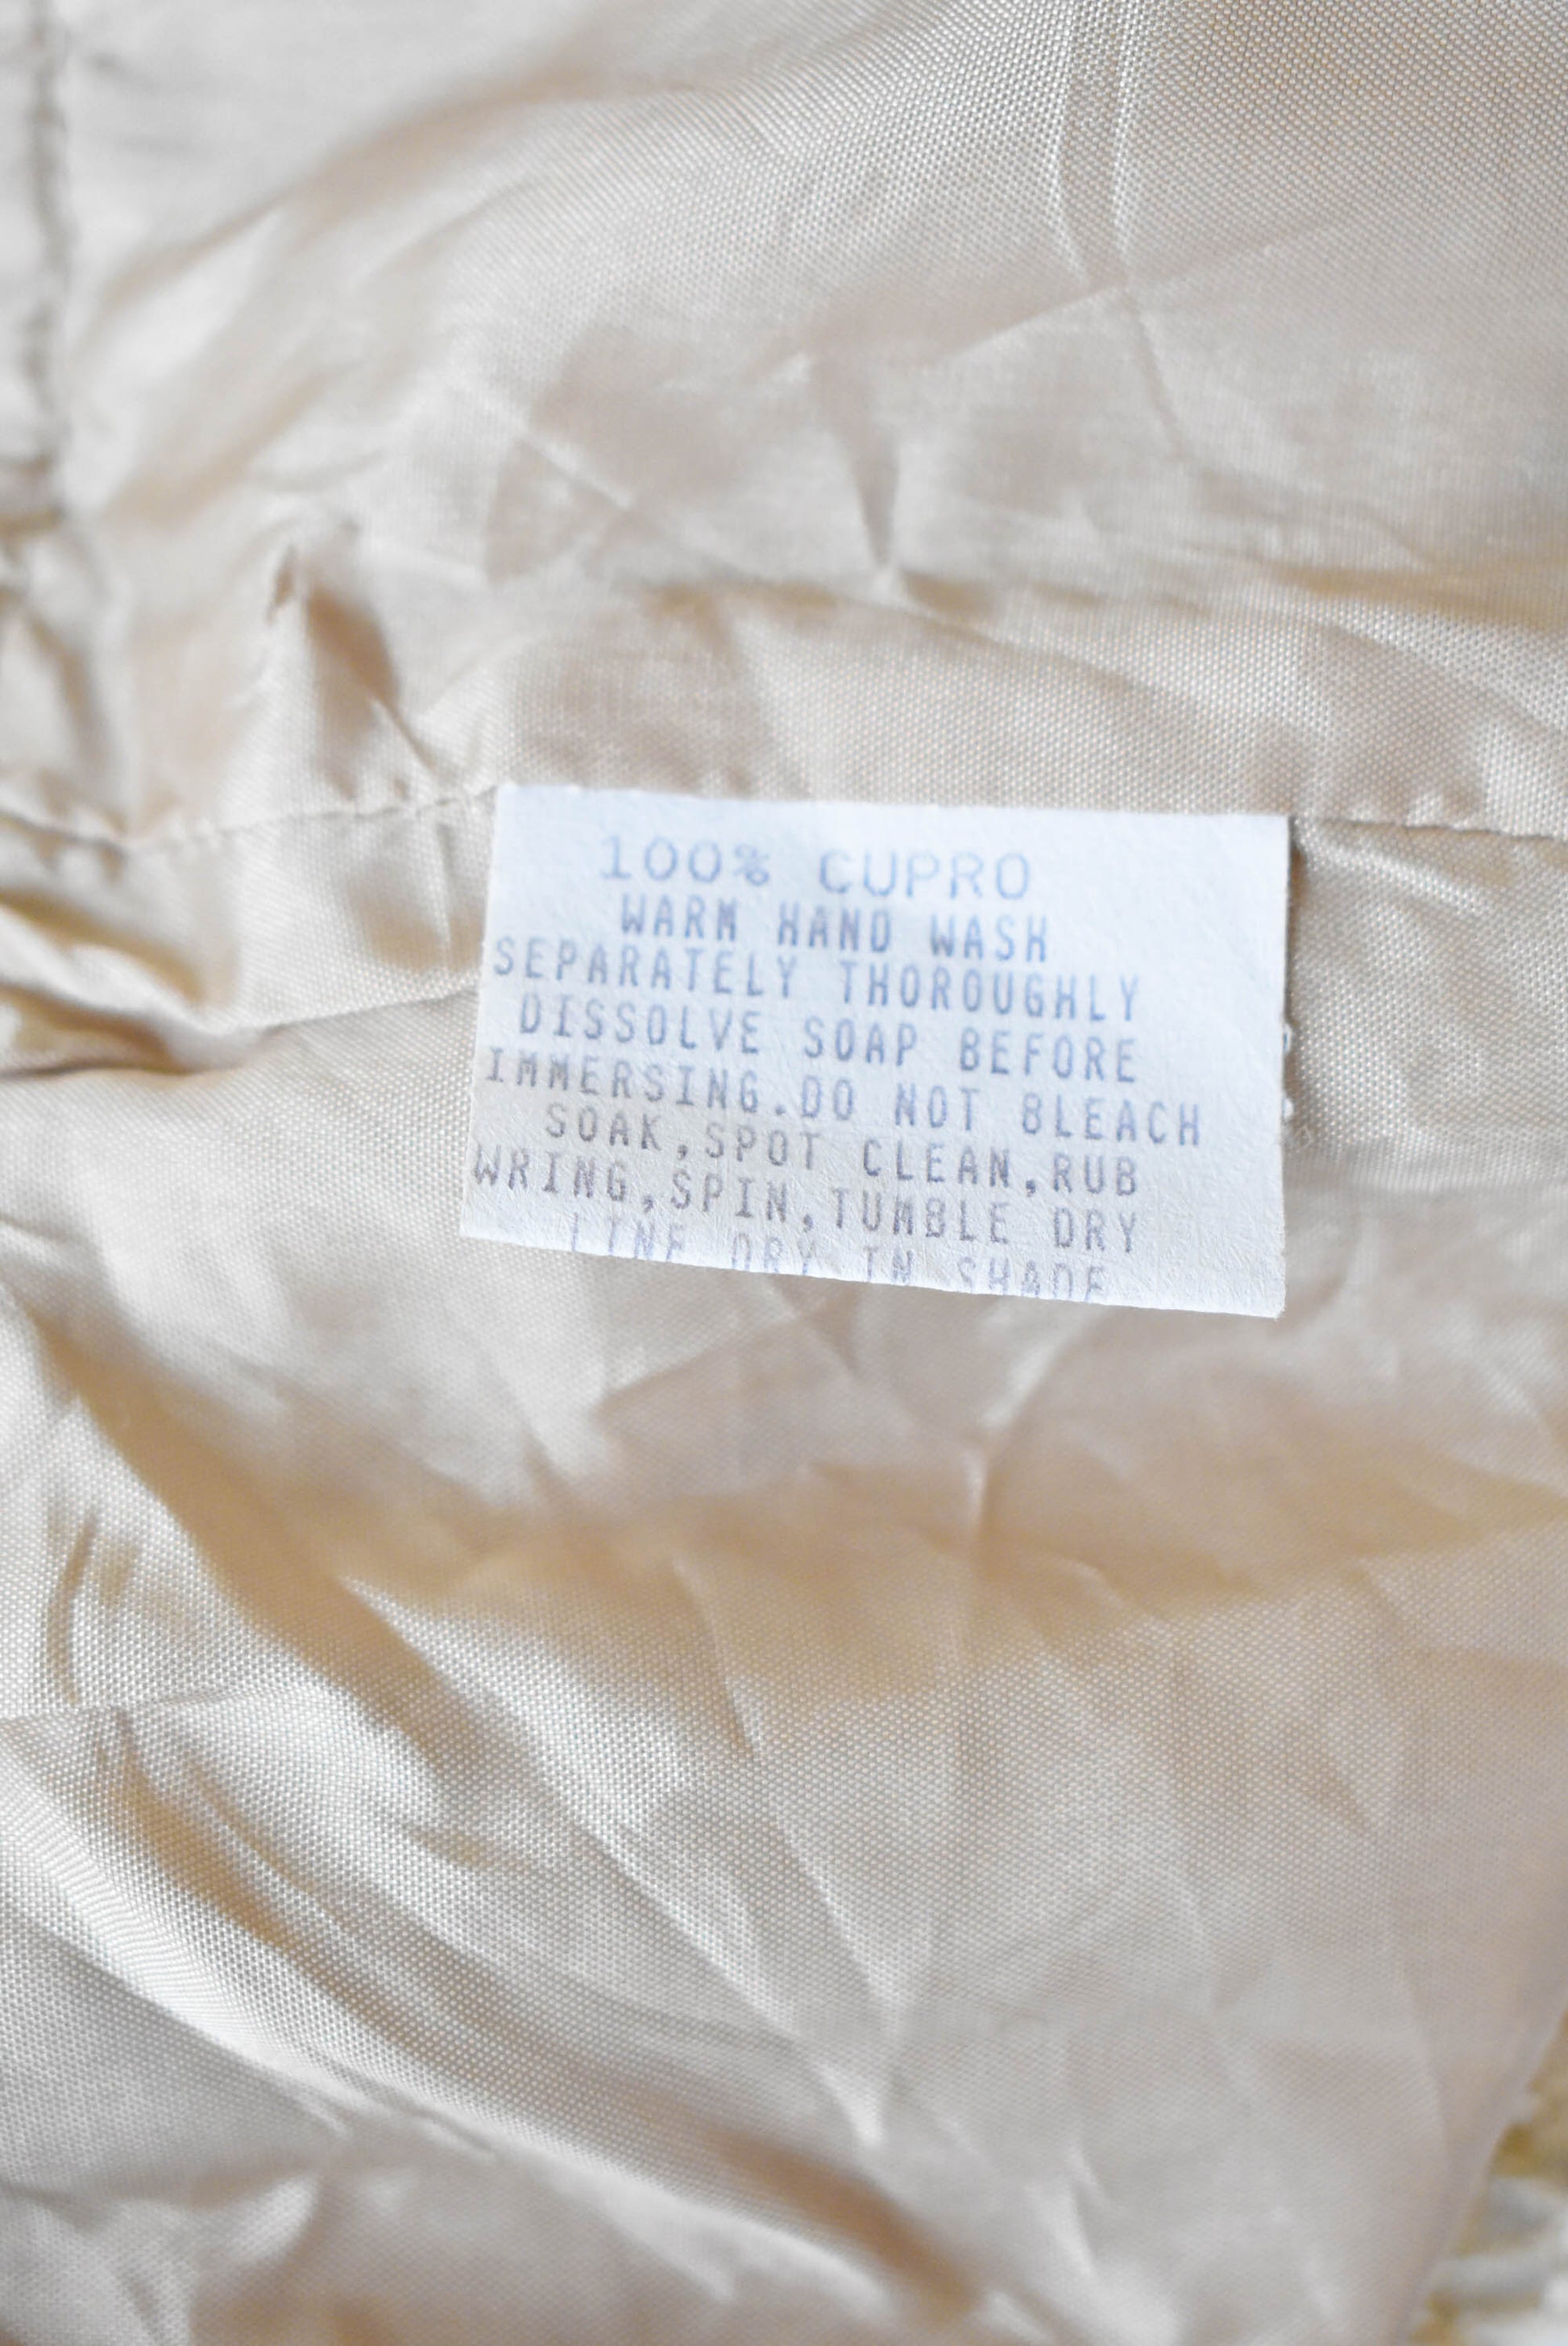 100% CUPRO
WARM HAND WASH
SEPARATELY THOROUGHLY
DISSOLVE SOAP BEFORE
IMMERSING.DO NOT BLEACH
SOAK,SPOT CLEAN,RUB
WRING,SPIN,TUMBLE DRY
LINE DRY IN SHADE